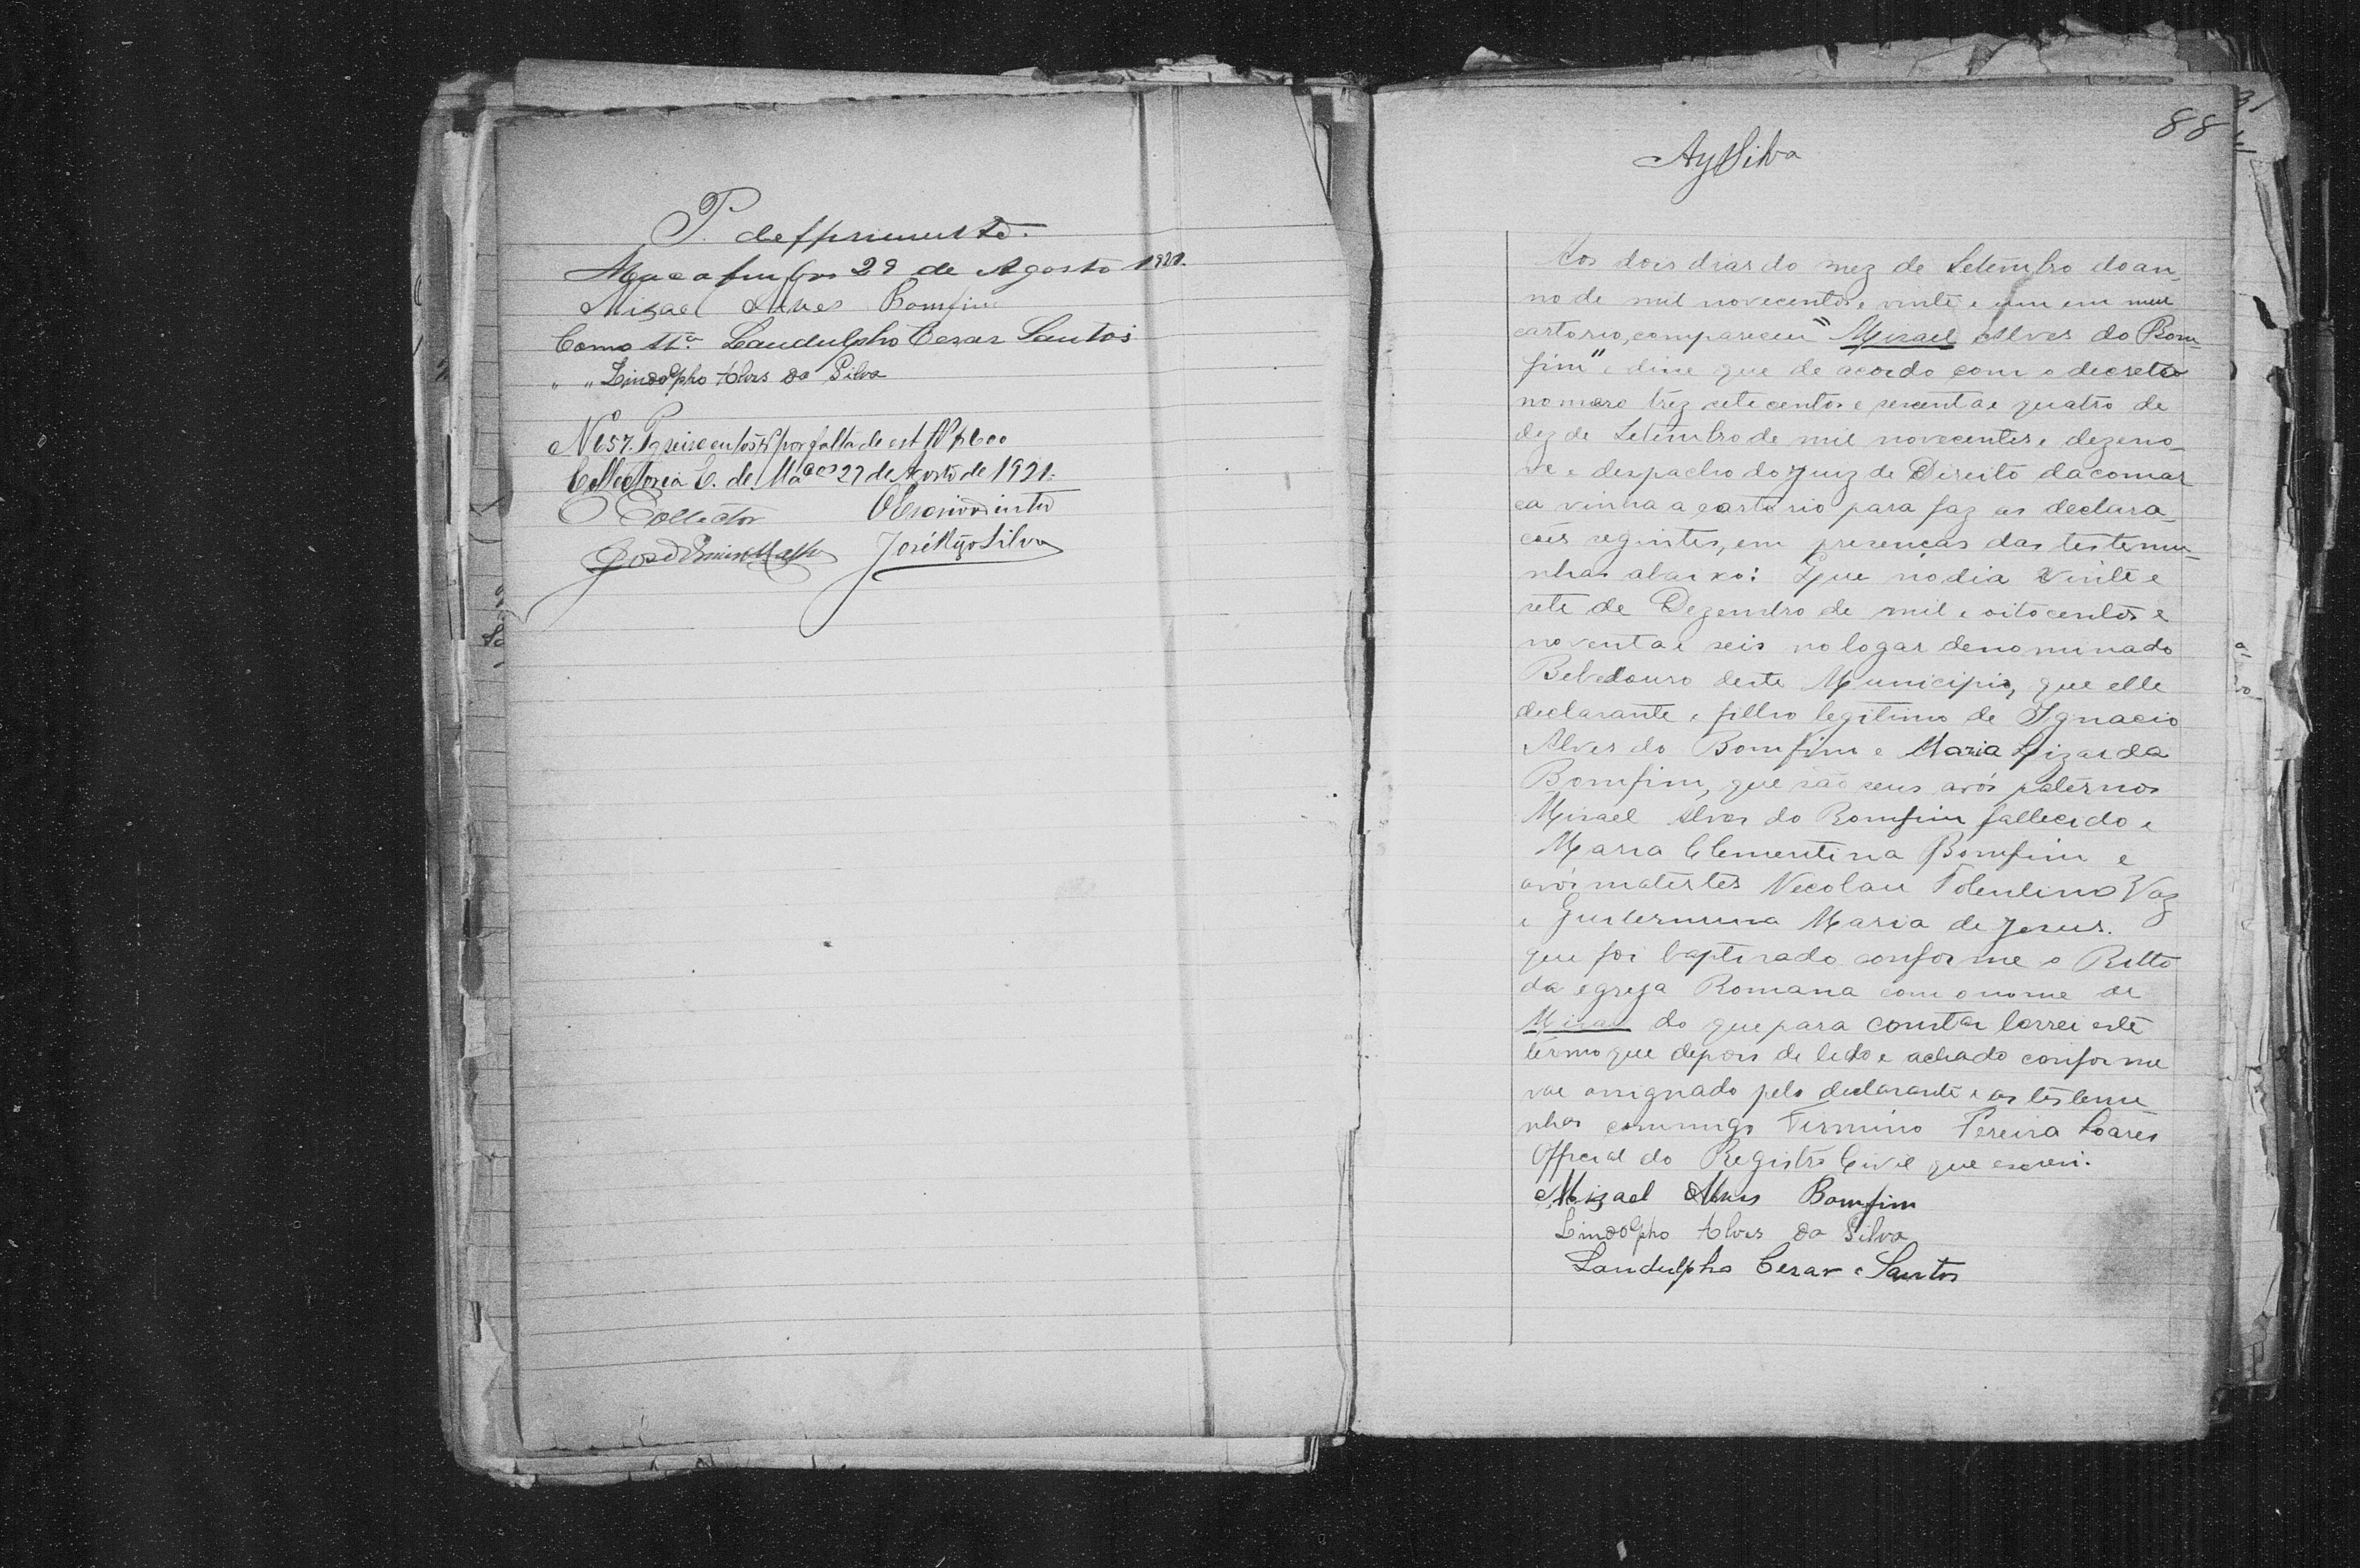 P. defferimento.
Macahubas 29 de Agosto 1921.
Misael Alves Bomfim
Como tta. Landulpho Cezar Santos
" " Lindolpho Alves da Silva
N 657. Pg seiscentos rs por falta de est Rs $600
Collectoria E. de Macas 27 de Agosto de 1921.
O Collector O Escrivão into
José José Ayo Silva
88
AySilva
Aos dois dias do mez de Setembro do an-
no de mil novecentos e vinte e um em meu
cartorio, compareceu "Misael Alves do Bom-
fim" e disse que de acordo com o decreto
nomero trez sete centos e secenta e quatro de
dez de Setembro de mil novecentos e dezeno-
ve e despacho do Juiz de Direito da comar
ca vinha a cartorio para faz as declara-
cões seguintes, em presenças das testemu-
nhas abaixo: Que no dia vinte e
sete de Dezembro de mil e oitocentos e
noventa e seis no logar denominado
Bebedouro deste Municipio, que elle
declarante e filho legitimo de Ignacio
Alves do Bomfim e Maria Lizarda
Bomfim, que são seus avós paternos
Misael Alves do Bomfim fallecido e
Maria Clementina Bomfim e
avós matertes Necolau Tolentino Vaz
e Maria de Jesus.
que foi baptisado conforme o Ritto
da egreja Romana com o nome de
Misael do que para constar lavrei este
termo que depois de lido e achado conforme
vae assignado pelo declarante e as testemu
nhas commigo Firmino Pereira Soares
Official do Registro Civil que escrevi.
Misael Alves Bomfim
Lindolpho Alves da Silva
Landulpho Cezar e Santos